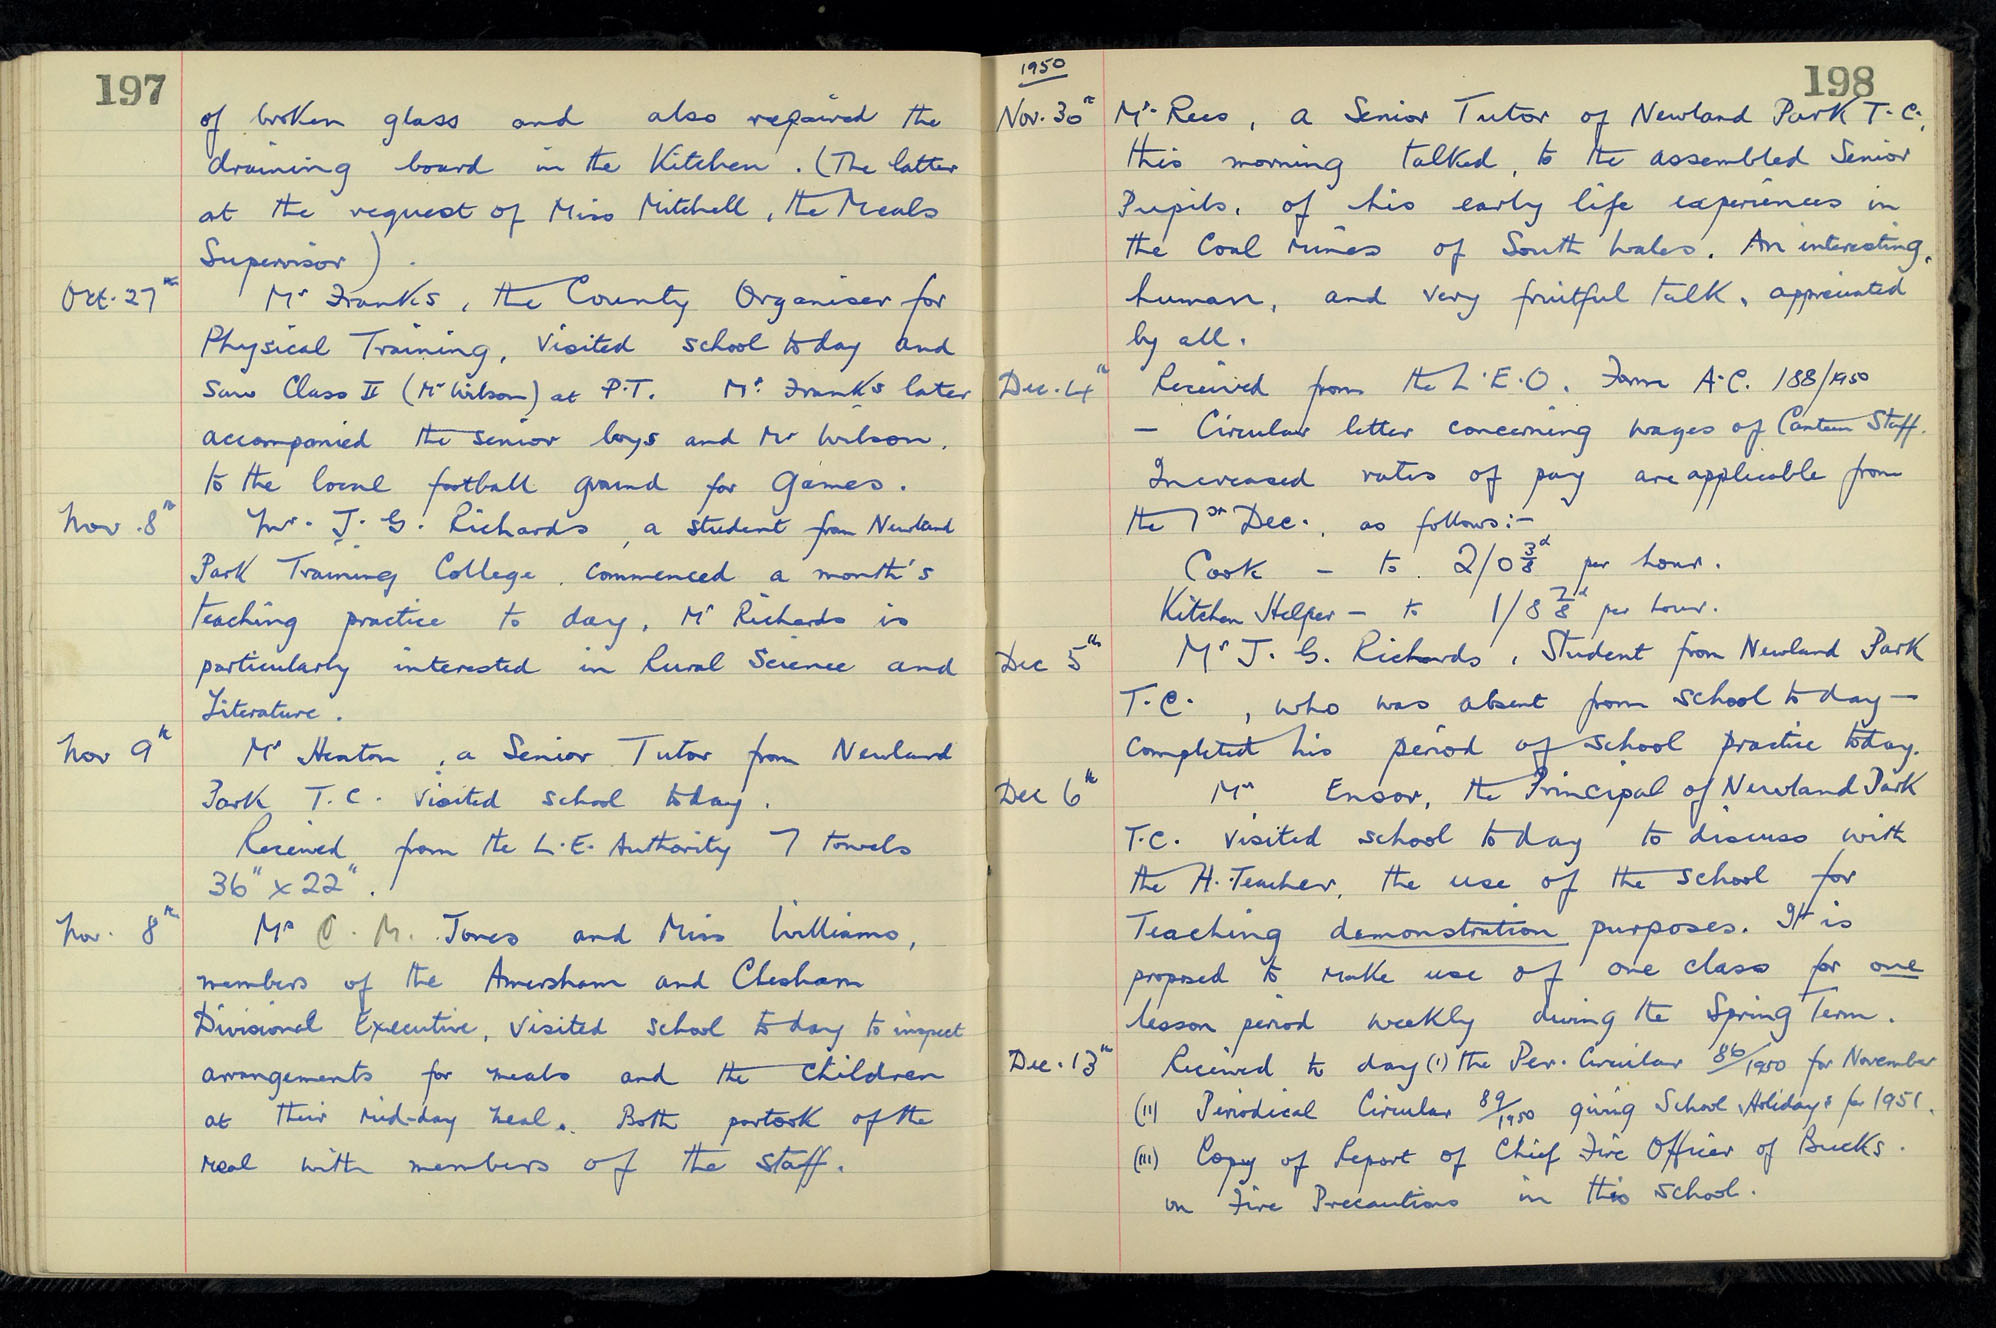 197
of broken glass and also repaired the
draining board in the Kitchen. (The latter
at the request of Miss Mitchell, the Meals
Supervisor).
Oct. 27th Mr Franks, the County Organiser for
Physical Training, visited school today and
saw Class II (Mr Wilson) at P.T. Mr. Franks later
accompanied the senior boys and Mr Wilson,
to the local football ground for Games.
Nov. 8th Mr. J. G. Richards, a student from Newland
Park Training College, commenced a month's
teaching practice to day. Mr Richards is
particularly interested in Rural Science and
Literature.
Nov 9th Mr Heaton, a Senior Tutor from Newland
Park T.C. visited school today.
Received from the L.E. Authority 7 towels
36" x 22".
Nov. 8th Mr O. M. Jones and Miss Williams,
members of the Amersham and Chesham
Divisional Executive, visited school today to inspect
arrangements for meals and the children
at their mid-day meal. Both partook of the
meal with members of the staff.
1950
198
Nov. 30th Mr. Rees, a Senior Tutor of Newland Park T.C.,
this morning talked, to the assembled Senior
Pupils, of his early life experiences in
the Coal mines of South Wales. An interesting,
human, and very fruitful talk, appreciated
by all.
Dec. 4th Received from the L.E.O. Form A.C. 188/1950
— Circular letter concerning wages of Canteen Staff.
Increased rates of pay are applicable from
the 1st Dec., as follows:-
Cook - to 2/0 3/8d per hour.
Kitchen Helper - to 1/8 7/8d per hour.
Dec 5th Mr J. G. Richards, Student from Newland Park
T.C., who was absent from school today —
completed his period of school practice today.
Dec 6th Mr Ensor, the Principal of Newland Park
T.C. visited school today to discuss with
the H. Teacher, the use of the school for
Teaching demonstration purposes. It is
proposed to make use of one class for one
lesson period weekly during the Spring Term.
Dec. 13th Received to day (i) the Per. Circular 86/1950 for November
(ii) Periodical Circular 89/1950 giving School Holidays for 1951.
(iii) Copy of Report of Chief Fire Officer of Bucks.
on Fire Precautions in this school.